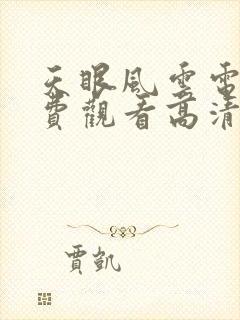 天眼風雲電
費觀看高清
賈凱